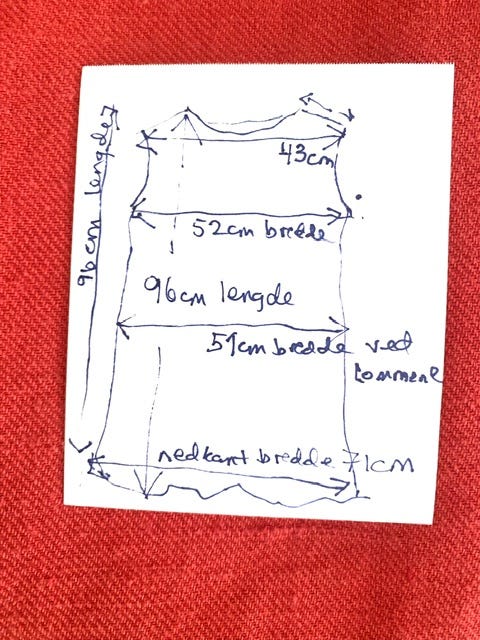 96cm lengde
43cm
52cm bredde
96cm lengde
51cm bredde ved
lommene
nedkant bredde 71cm